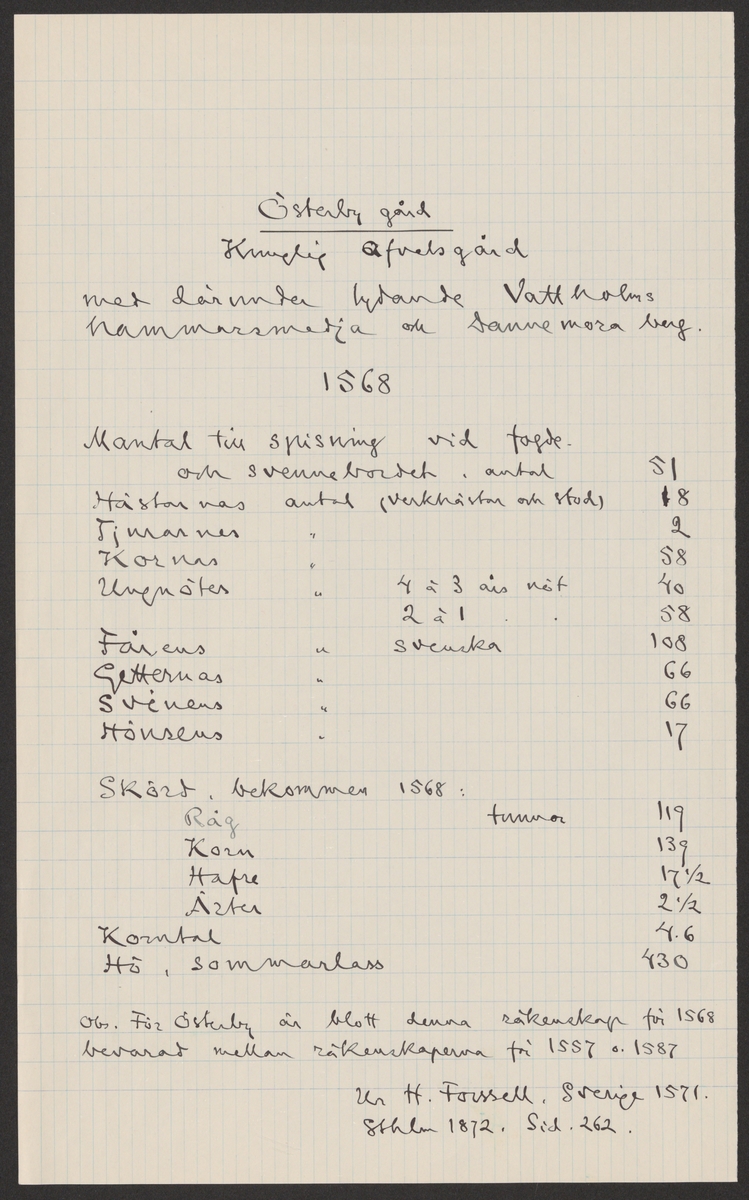 Österby gård
Kunglig Afvelsgård
med därunder lydande Vattholms
hammarsmedja och Dannemora berg.
1568
Mantal till spisning vid fogde-
och svennebordet, antal 51
Hästarnas antal (verkhästar och stod) 18
Tjurarnes " 2
Kornas " 58
Ungnötes " 4 à 3 års nöt 40
2 à 1 " " 58
Fårens " svenska 108
Getternas " 66
Svinens " 66
Hönsens " 17
Skörd, bekommen 1568:
Råg tunnor 119
Korn 139
Hafre 17 1/2
Ärter 2 1/2
Korntal 4.6
Hö, sommarlass 430
Obs. För Österby är blott denna räkenskap för 1568
bevarad mellan räkenskaperna för 1557 o. 1587
Ur H. Forssell, Sverige 1571.
Sthlm 1872. Sid. 262.